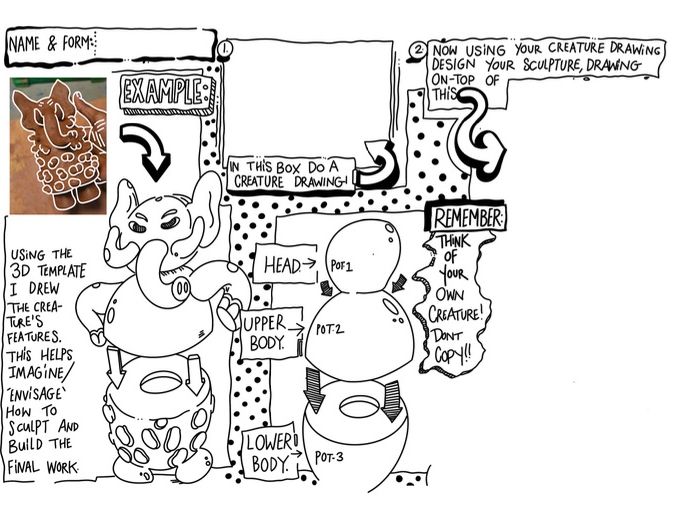 NAME & FORM:
EXAMPLE:
1.
IN THIS BOX DO A
CREATURE DRAWING!
2
NOW USING YOUR CREATURE DRAWING
DESIGN YOUR SCULPTURE, DRAWING
ON-TOP OF
THIS
REMEMBER:
THINK
OF
YOUR
OWN
CREATURE!
DONT
COPY!!
USING THE
3D TEMPLATE
I DREW
THE CREA-
TURE'S
FEATURES.
THIS HELPS
IMAGINE/
'ENVISAGE'
HOW TO
SCULPT AND
BUILD THE
FINAL WORK.
HEAD
POT1
UPPER
BODY.
POT.2
LOWER
BODY.
POT.3